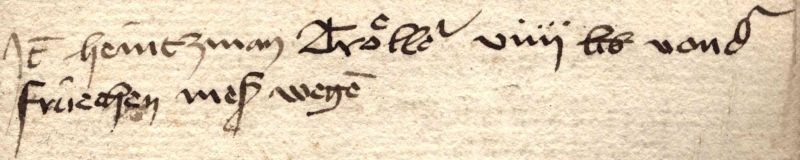 It heintzman Tröller viiij lib von d
früechen mess wege